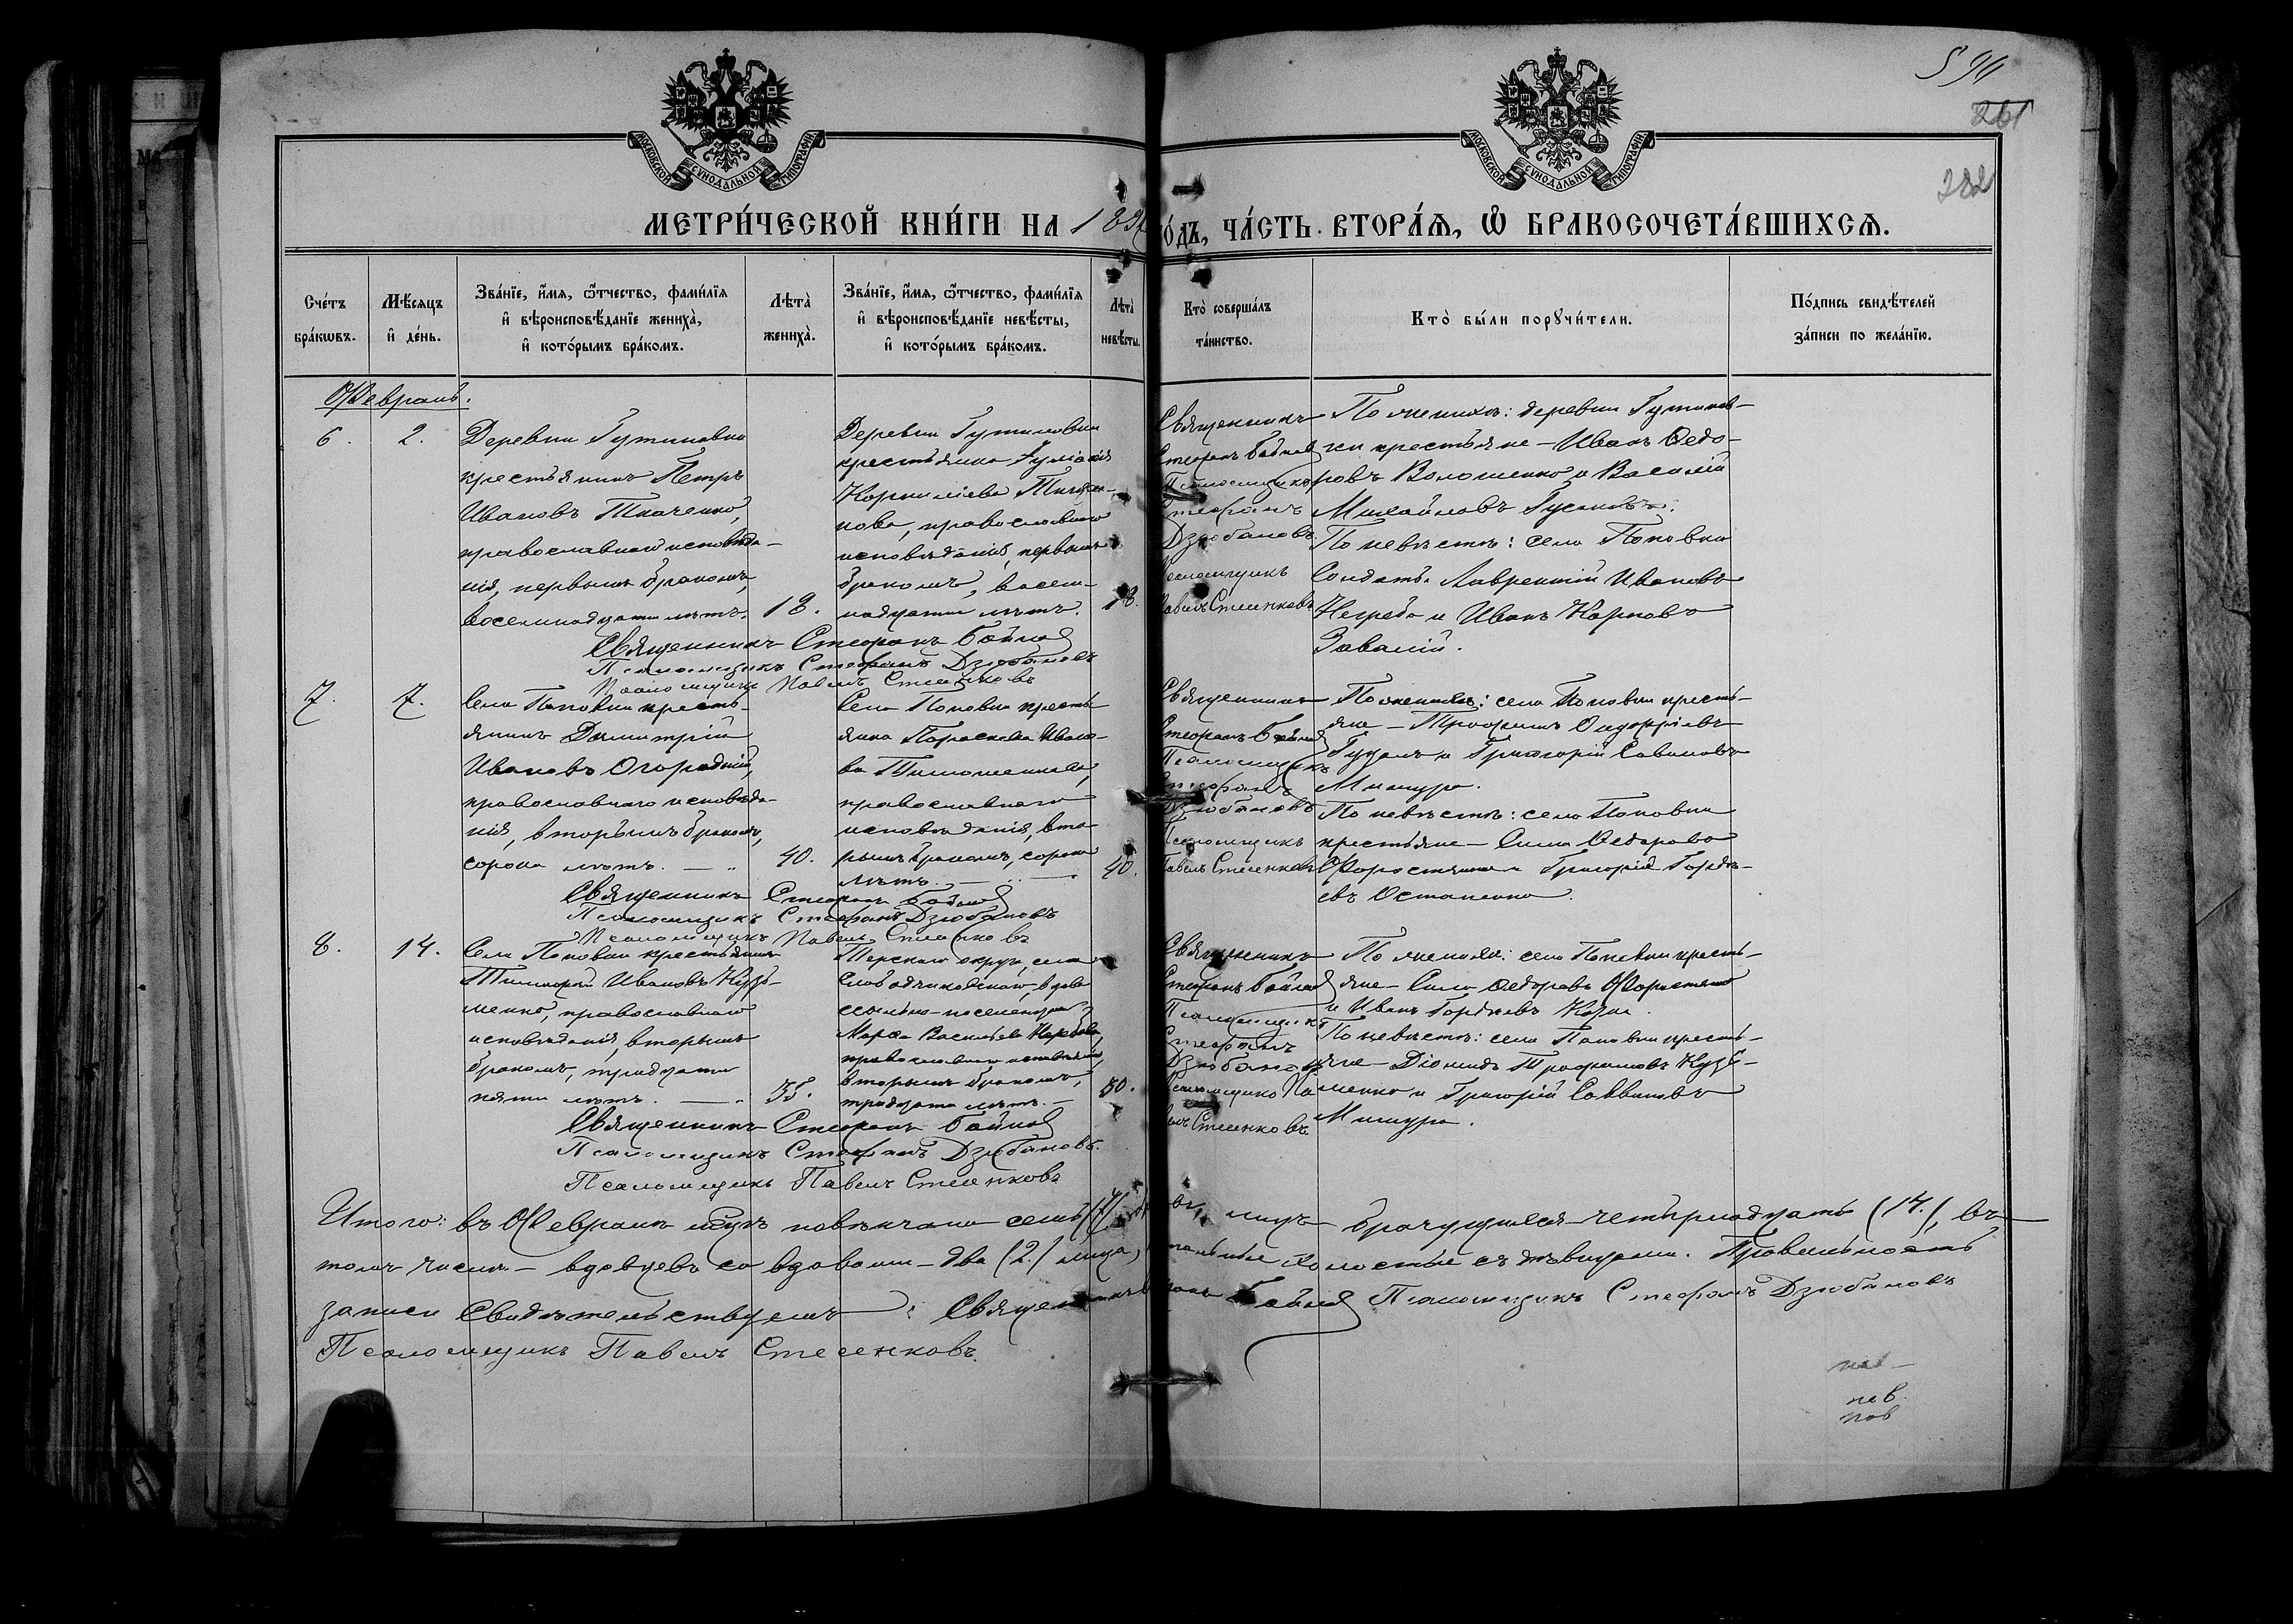 594
261
282
МОСКОВСКОЙ СѴНОДАЛЬНОЙ ТИПОГРАФІИ
МОСКОВСКОЙ СѴНОДАЛЬНОЙ ТИПОГРАФІИ
МЕТРИ́ЧЕСКОЙ КНИ́ГИ НА 189
О́ДЪ, ЧА́СТЬ ВТОРА́Ѧ, Ѽ БРАКОСОЧЕТА́ВШИХСѦ.
Сче́тъ бра́кѡвъ.
Мѣ́сяцъ и҆ де́нь.
Зва́нїе, и҆́мя, ѻ҆́тчество, фами́лїя и҆ вѣроисповѣ́данїе жениха̀, и҆ кото́рымъ бра́комъ.
Лѣта̀ жениха̀.
Зва́нїе, и҆́мя, ѻ҆́тчество, фами́лїя и҆ вѣроисповѣ́данїе невѣ́сты, и҆ кото́рымъ бра́комъ.
Лѣта̀ невѣ́сты.
Кто̀ соверша́лъ та́инство.
Кто̀ бы́ли порꙋчи́тели.
По́дпись свидѣ́телей за́писи по жела́нїю.
Февраль.
6.
2.
Деревни Гутиновки
крестьянинъ Петръ
Ивановъ Ткаченко,
православнаго исповѣда-
нія, первымъ бракомъ,
восемнадцати лѣтъ.
18.
Деревни Гутиновки
крестьянка Іуліанія
Корниліева
нова, православнаго
исповѣданія, первымъ
бракомъ, восем-
надцати лѣтъ.
18.
Священникъ
Стефанъ Бойков
Псаломщикъ
Стефанъ
Дзюбановъ
Псаломщикъ
Павелъ Стесенковъ
По женихѣ: деревни Гутинов-
ки крестьяне – Иванъ Ѳедо-
ровъ Волошенко и Василій
Михайловъ Гусакъ.
По невѣстѣ: села Поповки
Солдатъ Лаврентій Ивановъ
Негреба и Иванъ Карповъ
Завалій.
Священникъ Стефанъ
Псаломщикъ Стефанъ Дзюбановъ
Псаломщикъ Павелъ Стесенковъ
7.
7.
Села Поповки кресть-
янинъ Димитрій
Ивановъ Огородній,
православнаго исповѣда-
нія, вторымъ бракомъ,
сорока лѣтъ.
40.
Села Поповки кресть-
янка Параскева Ивано-
ва Тимошенкова,
православнаго
исповѣданія, вто-
рымъ бракомъ, сорока
лѣтъ.
40.
Священникъ
Стефанъ
Псаломщикъ
Стефанъ
Дзюбановъ
Псаломщикъ
Павелъ Стесенковъ
По женихѣ: села Поповки кресть-
яне – Трофимъ
и Григорій Савиновъ
Мишура.
По невѣстѣ: села Поповки
крестьяне – Сила Ѳедоровъ
Форостянъ и Григорій Гордѣ-
евъ Остапенко.
Священникъ Стефанъ
Псаломщикъ Стефанъ Дзюбановъ
Псаломщикъ Павелъ Стесенковъ
8.
14.
Села Поповки крестьянинъ
Тимофей Ивановъ Кузь-
менко, православнаго
исповѣданія, вторымъ
бракомъ, тридцати
пяти лѣтъ.
35.
округа, села
вдова
ссыльно-поселенца
Марѳа Васильева
православнаго исповѣданія,
вторымъ бракомъ,
тридцати лѣтъ.
30.
Священникъ
Стефанъ
Псаломщикъ
Стефанъ
Дзюбановъ
Псаломщикъ Па-
велъ Стесенковъ
По женихѣ: села Поповки кресть-
яне – Сила Ѳедоровъ Форостянъ
и Иванъ Гордѣевъ Козин.
По невѣстѣ: села Поповки кресть-
яне – Діомидъ Трофимовъ Кузь-
менко и Григорій Саввиновъ
Мишура.
Священникъ Стефанъ
Псаломщикъ Стефанъ Дзюбановъ.
Псаломщикъ Павелъ Стесенковъ
Итого: въ Февралѣ мѣсяцѣ повѣнчано семь (7) лицъ брачущихся четырнадцать (14.), въ
томъ числѣ – вдовцевъ со вдовами – два (2.) лица, остальные холостые съ дѣвицами. Правильность
записи свидѣтельствуемъ: Священникъ Псаломщикъ Стефанъ Дзюбановъ
Псаломщикъ Павелъ Стесенковъ.